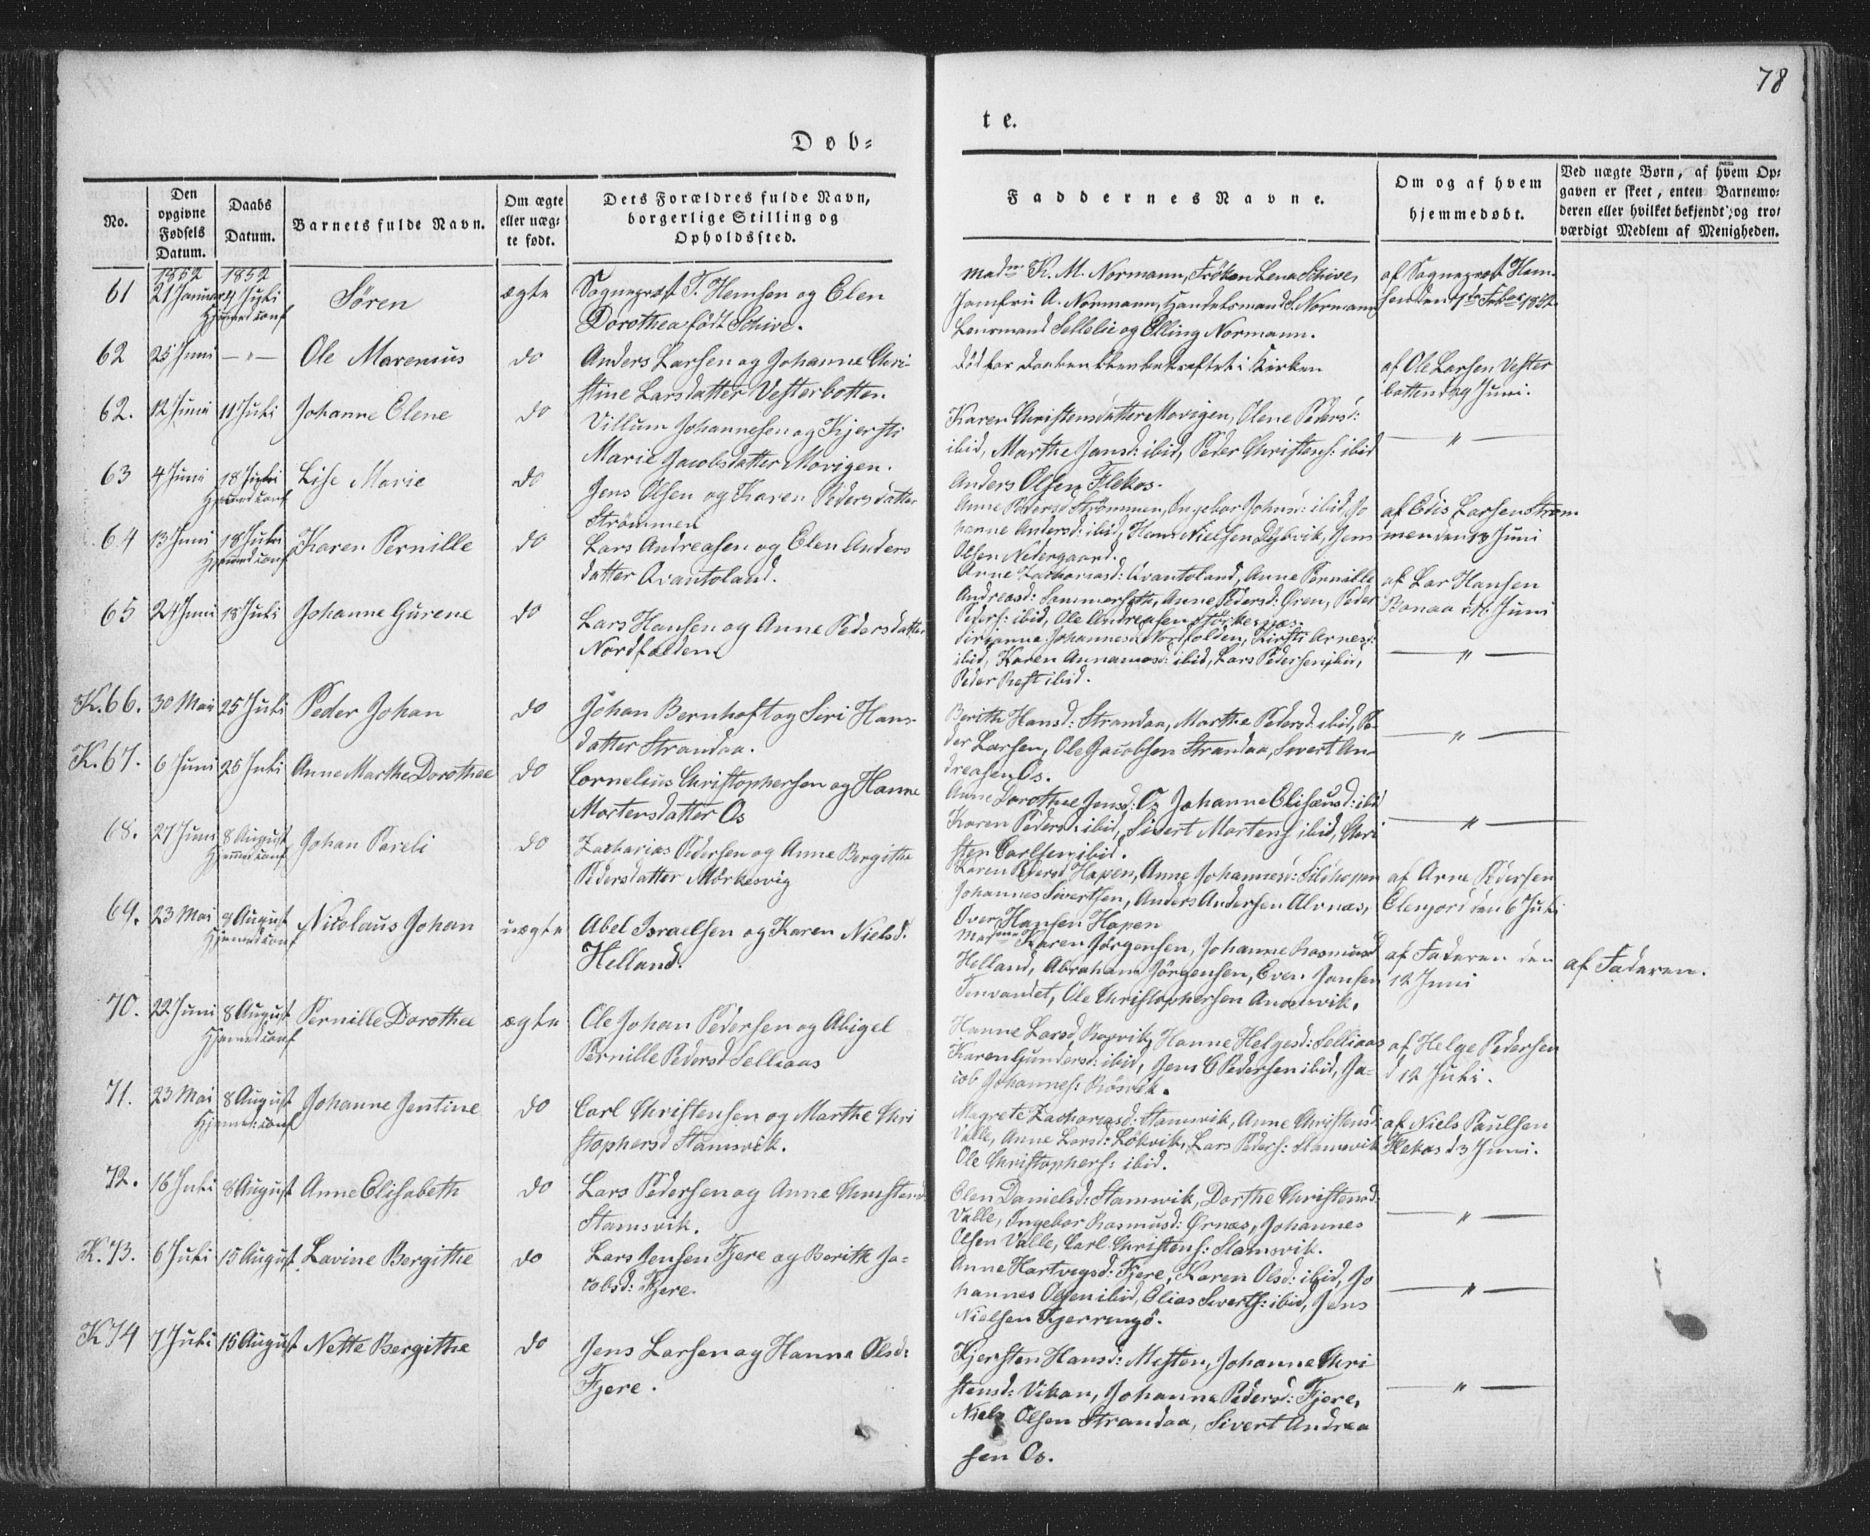 78
Døb=
te.
No.
Den opgivne Fødsels Datum.
Daabs Datum.
Barnets fulde Navn.
Om ægte eller uæg- te født.
Dets Forældres fulde Navn, borgerlige Stilling og Opholdssted.
Faddernes Navne.
Om og af hvem hjemmedøbt.
Ved uægte Børn, af hvem Op- gaven er skeet, enten Barnemo- deren eller hvilket bekjendt, og tro- værdigt Medlem af Menigheden.
1852 1852
61 21 Januar 4 Juli Søren ægte Sognepræst T. Hemsen og Elen
Hjemmed conf
Dorothea født Schive.
Mad K. M. Normann, Frøken Lena Schive,
Jomfru A. Normann, Handelsmand S. Normann
Lensmand Sellelie og Elling Normann.
af Sognepræst Hem-
sen den 1852
62 25 Juni —"— Ole Marenius do Anders Larsen og Johanne Chri-
stine Larsdatter Vesterbotten.
død før Daaben bekræftet i Kirken
af Ole Larsen Vester
botten d 29 Juni.
62. 12 Juni 11 Juli Johanne Elene do Villum Johannesen og Kjersti
Marie Jacobsdatter Movigen.
Karen Christensdatter Movigen, Olene Pedersd:
ibid, Marthe Jansd: ibid, Peder Christens: ibid
Anders Olsen Flekos.
—"—
63 4 Juni 18 Juli Lise Marie do Jens Olsen og Karen Pedersdatter
Hjemmed conf
Strømmen
Anne Pedersd Strømmen, Ingebor Johns: ibid, Jo
hanne Andersd: ibid, Hans Nielsen Dybvik, Jens
Olsen Nedergaard.
af Edis Larsen Strøm-
men den 13 Juni
64 13 Juni 18 Juli Karen Pernille do Lars Andreasen og Elen Anders
Hjemmed conf
datter Qvantoland.
Anne Zachariasd: Qvantoland, Anne Pernille
Andreasd: Sommerseth, Anne Pedersd: Øren, Peder
Peders: ibid, Ole Andreasen Størkersnæs.
af Lar Hansen
Bonaa d 16 Juni
65 24 Juni 18 Juli Johanne Gurene do Lars Hansen og Anne Pedersdatter
Nordfolden
Johannesd Nordfolden, Kirsti Arnesd:
ibid, Karen Annamasd: ibid, Lars Pedersen ibid,
Peder Rest ibid.
—"—
K. 66. 30 Mai 25 Juli Peder Johan do Johan Bernhoft og Siri Hans-
datter Strandaa.
Berith Hansd: Strandaa, Marthe Pedersd: ibid, Pe-
der Larsen, Ole Jacobsen Strandaa, Sivert An-
dreasen Os.
—"—
K. 67. 6 Juni 25 Juli Anne Marthe Dorothee do Cornelius Christophersen og Hanne
Mortensdatter Os
Anne Dorothee Jensd: Os Johanne Elisæusd: ibid
Karen Pedersd: ibid, Sivert Mortens ibid, Chri
sten Carlsen ibid.
—"—
68. 27 Juni 8 August Johan Pareli do Zacharias Pedersen og Anne Bergithe
Hjemmed conf
Pedersdatter Mørkesvig
Karen Pedersd Hopen, Anne Johannesd: Sildhopen
Johannes Sivertsen, Anders Andersen Alvnæs,
Over Hansen Hopen
af Arne Pedersen
Elenjord den 6 Juli
69. 23 Mai 8 August Nicolaus Johan uægte Abel Israelsen og Karen Nielsd.
Hjemmed conf
Helland.
Madame Karen Jørgensen, Johanne Rasmusd
Helland, Abraham Jørgensen, Even Jansen
Tenvandet, Ole Christophersen Andersvik.
af Faderen den
12 Juni
af Faderen.
70. 22 Juni 8 August Pernille Dorothee ægte Ole Johan Pedersen og Abigel
Hjemmed conf
Pernille Pedersd Selliaas
Hanne Larsd Røsvik, Hanne Helgesd: Selliaas
Karen Gundersd: ibid, Jens C Pedersen ibid, Ja-
cob Johannes: Røsvik.
af Helge Pedersen
d 12 Juli.
71. 23 Mai 8 August Johanne Jentine do Carl Christensen og Marthe Chri
Hjemmed: conf
stophersd Stamsvik.
Magrete Zachariasd: Stamsvik, Anne Christensd:
Valle, Anne Larsd: Løkvik, Lars Peders: Stamsvik
Ole Christophers: ibid.
af Niels Paulsen
Flekos d 3 Juni.
72. 16 Juli 8 August Anne Elisabeth do Lars Pedersen og Anne Christensd
Stamsvik.
Elen Danielsd: Stamsvik, Dorthe Christensd:
Valle, Ingebor Rasmusd: Ørnæs, Johannes
Olsen Valle, Carl Christens: Stamsvik.
—"—
K. 73. 6 Juli 15 August Lavine Bergithe do Lars Jensen Fjere og Berith Ja-
cobsd: Fjere.
Anne Hartvigsd: Fjere, Karen Olsd: ibid, Jo
hannes Olsen ibid, Elias Siverts: ibid, Jens
Nielsen Kjerringø.
—"—
K 74 7 Juli 15 August Nette Bergithe do Jens Larsen og Hanna Olsd:
Fjere.
Kjersten Hansd: Misten, Johanne Chri
stensd: Vikan, Johanna Pedersd: Fjere,
Niels Olsen Strandaa, Sivert Andrea
sen Os.
—"—